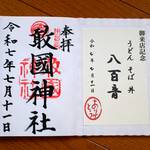 奉拝
敢國神社
令和七年七月十一日
御来店記念
うどん そば 丼
八百音
令和七年七月十一日